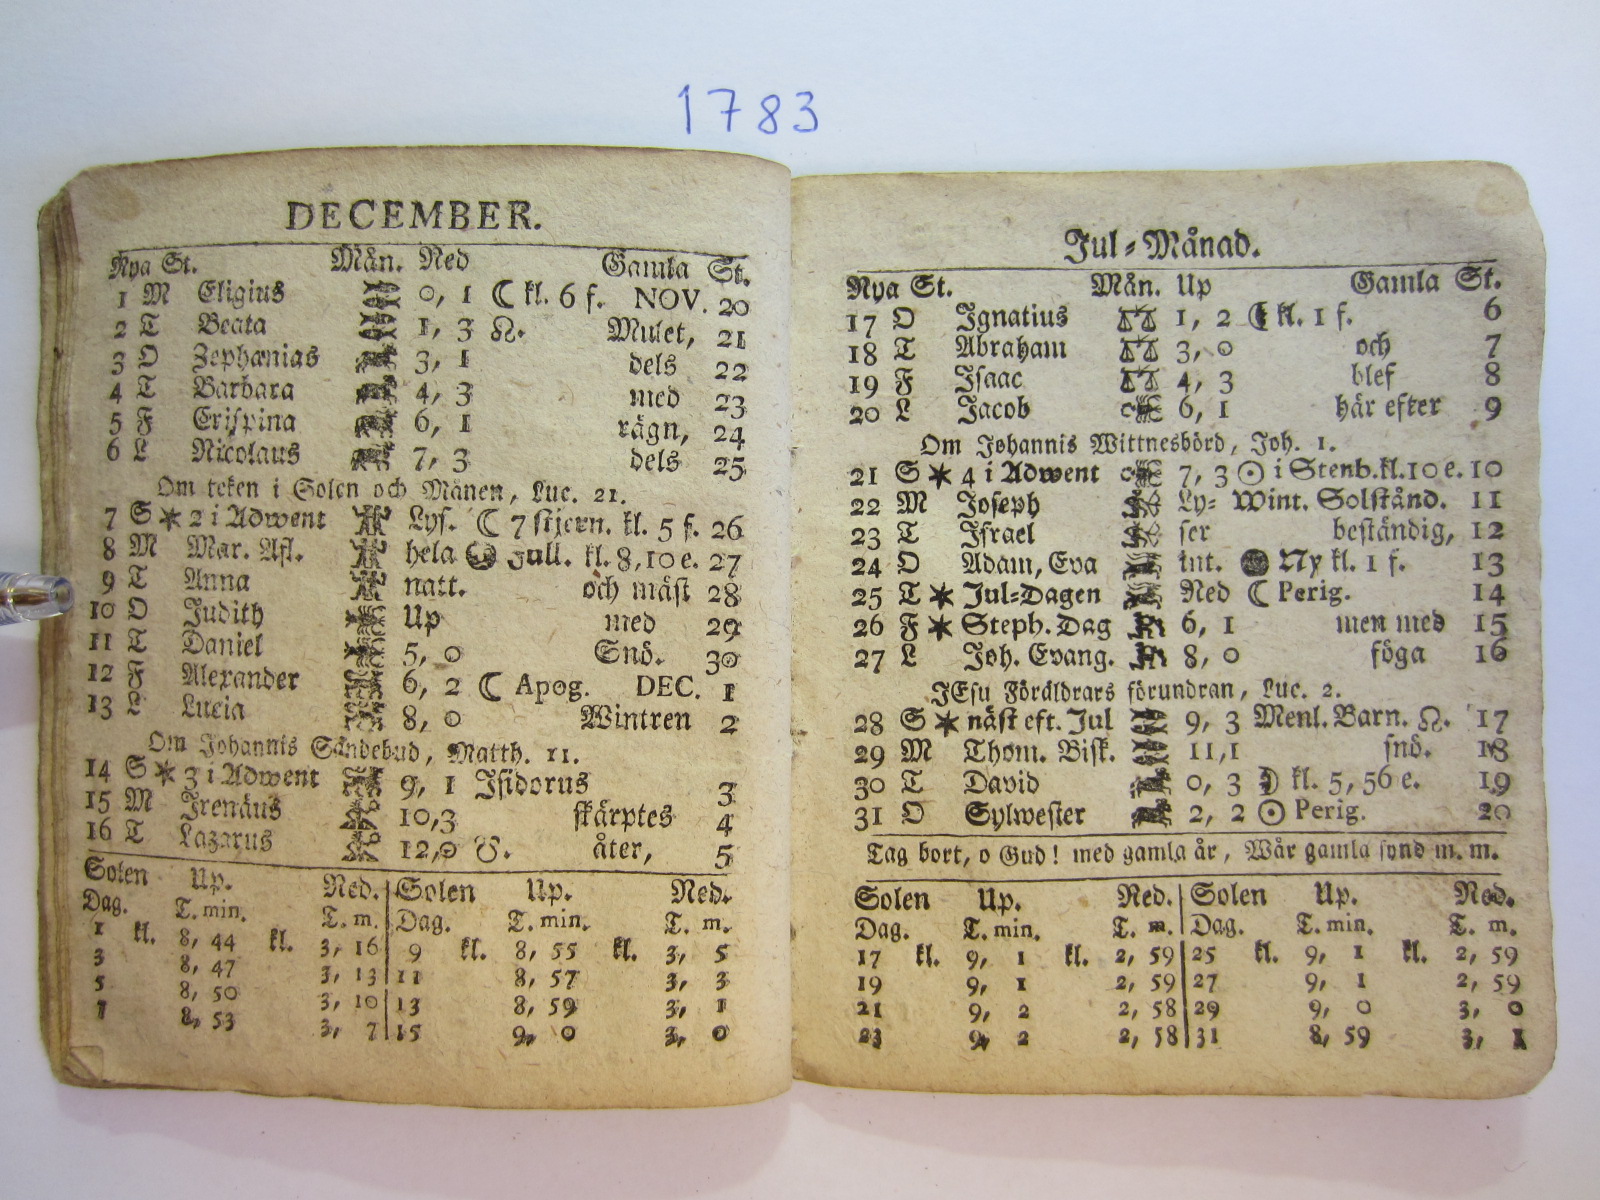 1783
DECEMBER.
Nya St. Mån. Ned Gamla St.
1 M Eligius 0, 1 ☾ kl. 6 f. NOV. 20
2 T Beata 1, 3 ☊. Mulet, 21
3 O Zephanias 3, 1 dels 22
4 T Barbara 4, 3 med 23
5 F Crispina 6, 1 rägn, 24
6 L Nicolaus 7, 3 dels 25
Om teken i Solen och Månen, Luc. 21.
7 S * 2 i Adwent Lys. ☾ 7 stjern. kl. 5 f. 26
8 M Mar. Afl. hela Full. kl. 8, 10 e. 27
9 T Anna natt. och mäst 28
10 O Judith Up med 29
11 T Daniel 5, 0 Snö. 30
12 F Alexander 6, 2 ☾ Apog. DEC. 1
13 L Lucia 8, 0 Wintren 2
Om Johannis Sändebud, Matth. 11.
14 S * 3 i Adwent 9, 1 Isidorus 3
15 M Irenäus 10,3 skärptes 4
16 T Lazarus 12,0 ☋. åter, 5
Solen Up. Ned. Solen Up. Ned.
Dag. T. min. T. m. Dag. T. min. T. m.
1 kl. 8, 44 kl. 3, 16 9 kl. 8, 55 kl. 3, 5
3 8, 47 3, 13 11 8, 57 3, 3
5 8, 50 3, 10 13 8, 59 3, 1
7 8, 53 3, 7 15 9, 0 3, 0
Jul-Månad.
Nya St. Mån. Up Gamla St.
17 O Ignatius 1, 2 ☾ kl. 1 f. 6
18 T Abraham 3, 0 och 7
19 F Isaac 4, 3 blef 8
20 L Jacob 6, 1 här efter 9
Om Johannis Wittnesbörd, Joh. 1.
21 S * 4 i Adwent 7, 3 ☉ i Stenb. kl. 10 e. 10
22 M Joseph Ly- Wint. Solstånd. 11
23 T Israel ser beständig, 12
24 O Adam, Eva int. Ny kl. 1 f. 13
25 T * Jul-Dagen Ned ☾ Perig. 14
26 F * Steph. Dag 6, 1 men med 15
27 L Joh. Evang. 8, 0 föga 16
JEsu Föräldrars förundran, Luc. 2.
28 S * näst eft. Jul 9, 3 Menl. Barn. ☊. 17
29 M Thom. Bisk. 11,1 snö. 18
30 T David 0, 3 ☽ kl. 5, 56 e. 19
31 O Sylwester 2, 2 ☉ Perig. 20
Tag bort, o Gud! med gamla år, Wår gamla synd m. m.
Solen Up. Ned. Solen Up. Ned.
Dag. T. min. T. m. Dag. T. min. T. m.
17 kl. 9, 1 kl. 2, 59 25 kl. 9, 1 kl. 2, 59
19 9, 1 2, 59 27 9, 1 2, 59
21 9, 2 2, 58 29 9, 0 3, 0
23 9, 2 2, 58 31 8, 59 3, 1